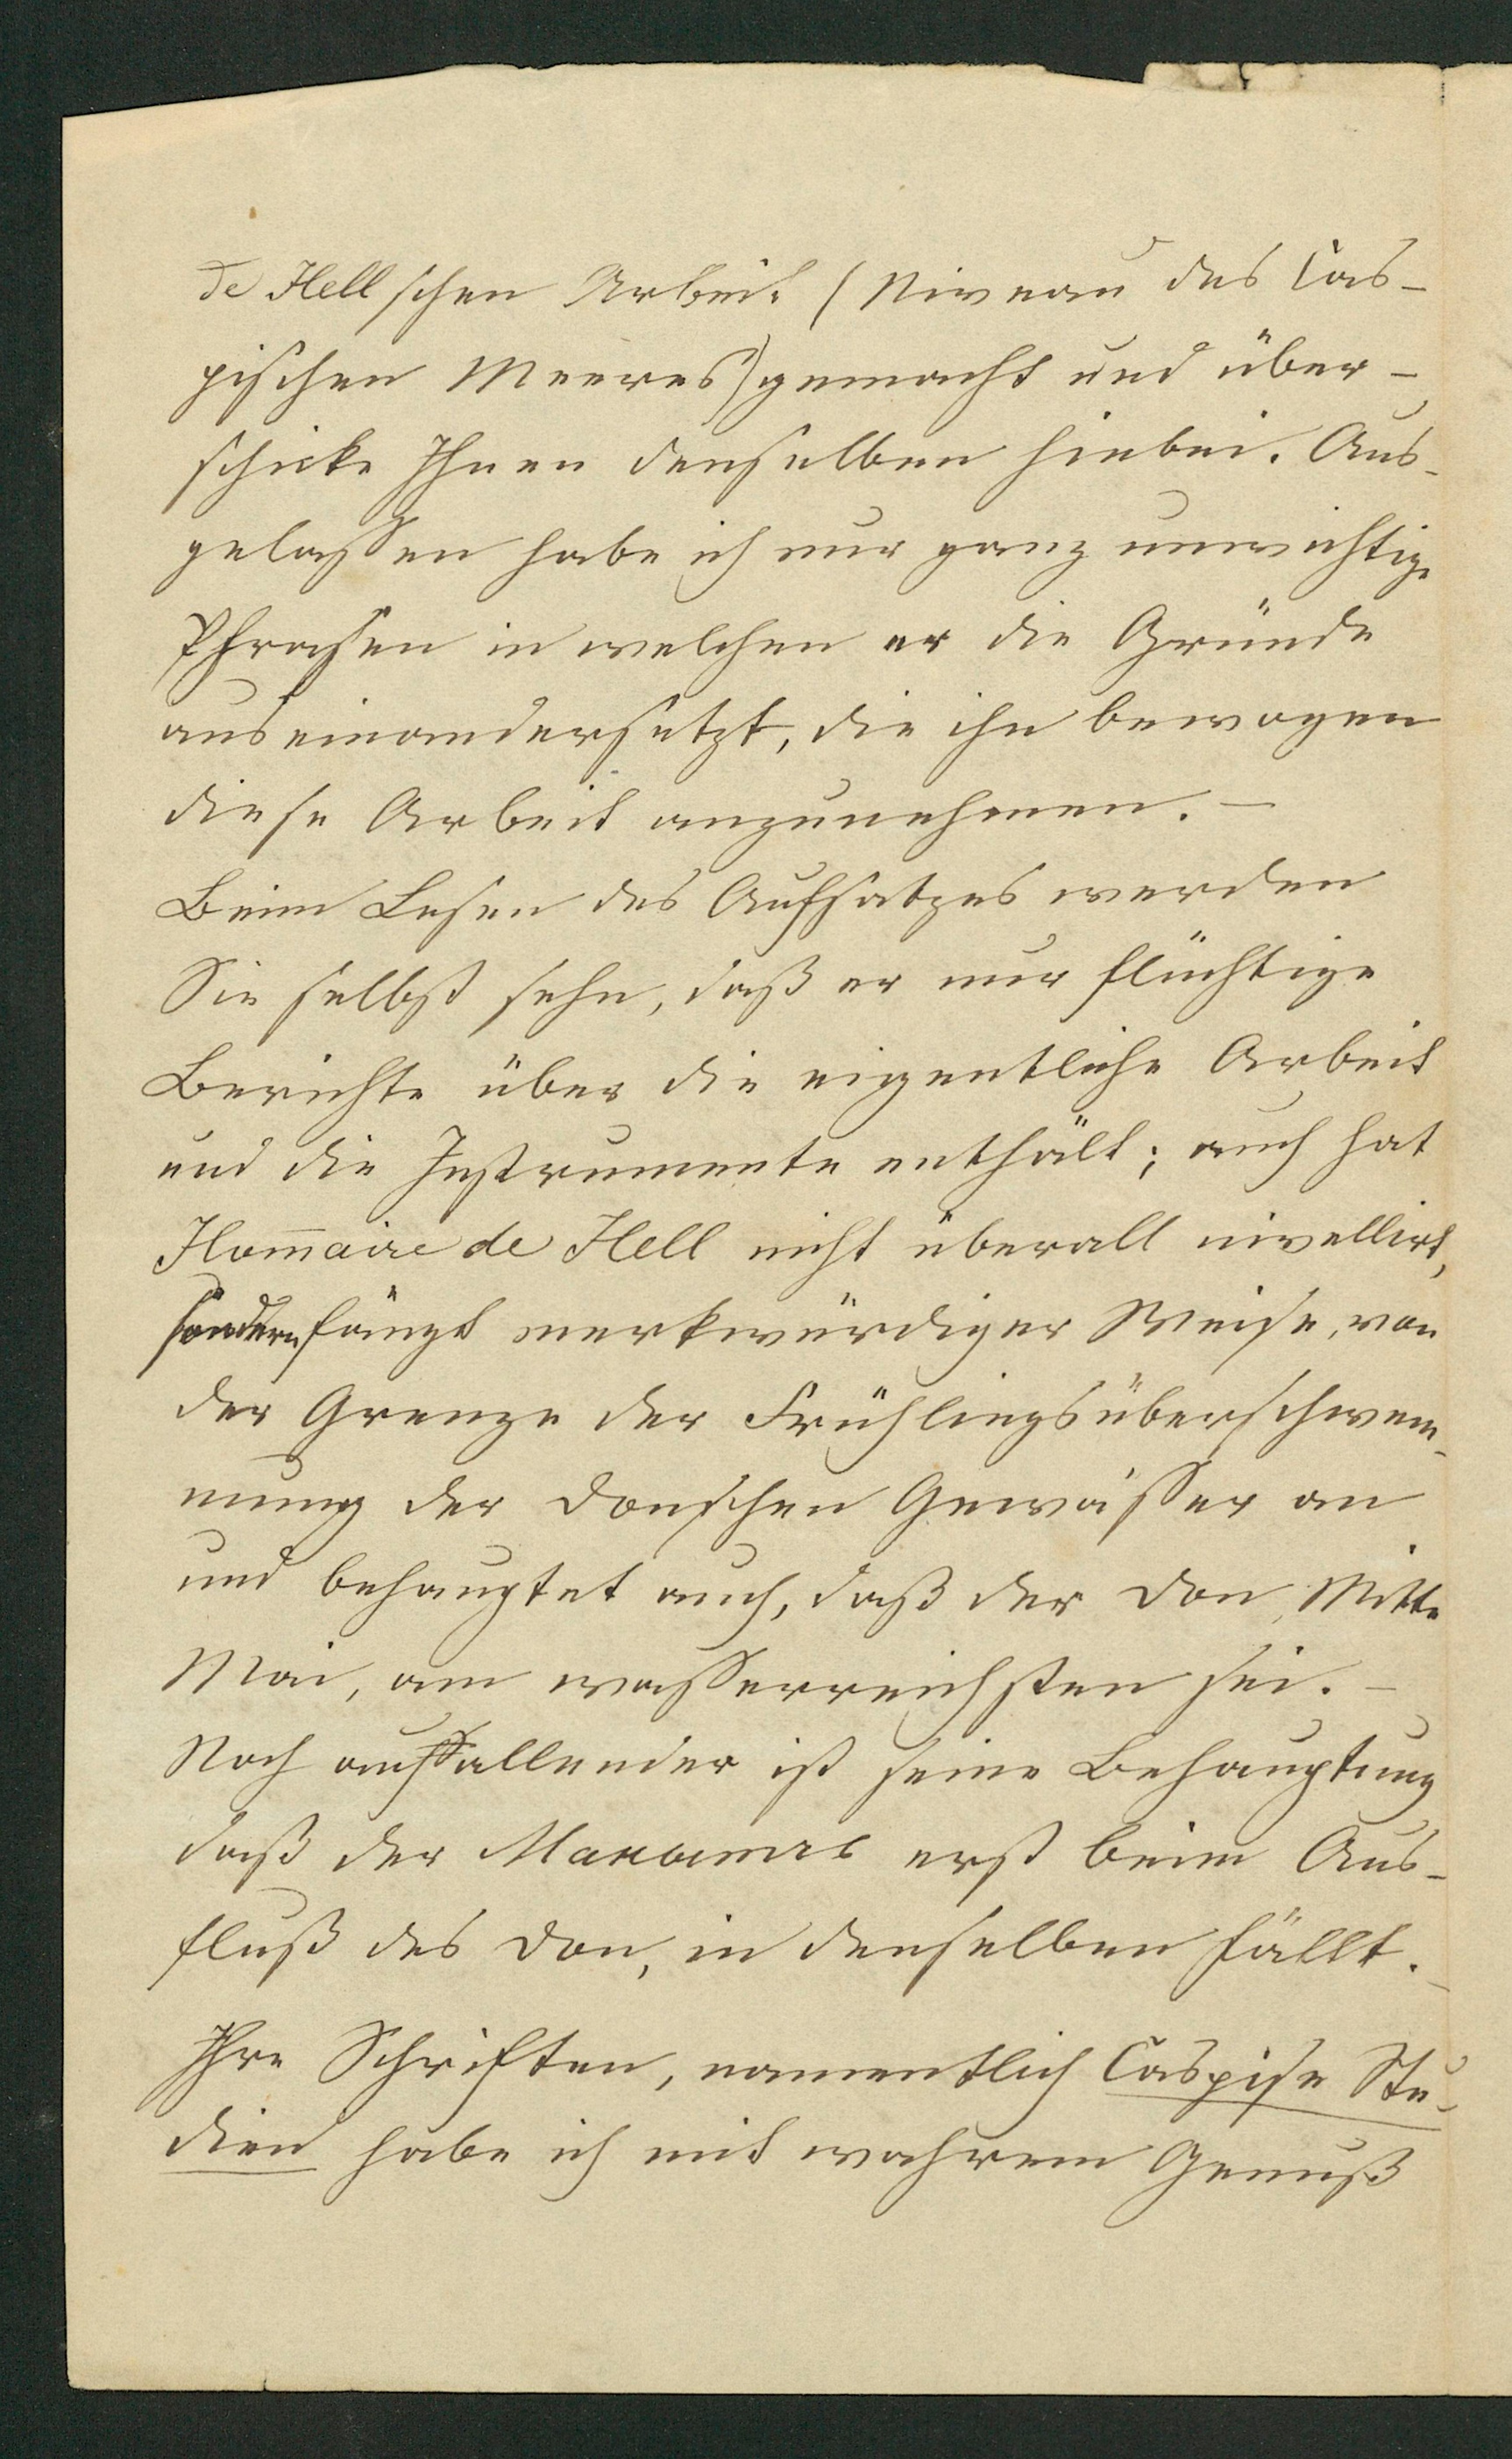 de Hellschen Arbeit (Niveau des Cas-
pischen Meeres) gemacht und über-
schicke Ihnen denselben hiebei. Aus-
gelassen habe ich nur ganz unwichtige
Phrasen in welchen er die Gründe
auseinandersetzt, die ihn bewogen
diese Arbeit anzunehmen. –
Beim Lesen des Aufsatzes werden
Sie selbst sehn, daß er nur flüchtige
Berichte über die eigentliche Arbeit
und die Instrumente enthält; auch hat
Hom̅aire de Hell nicht überall nivellirt,
sondern fängt merkwürdiger Weise, von
der Grenze der Frühlingsüberschwem-
mung der Donschen Gewässer an
und behauptet auch, daß der Don, Mitte
Mai, am wasserreichsten sei. –
Noch auffallender ist seine Behauptung
daß der Маныч erst beim Aus-
fluß des Don, in denselben fällt.
Ihre Schriften, namentlich Caspise Stu-
dien habe ich mit wahrem Genuß